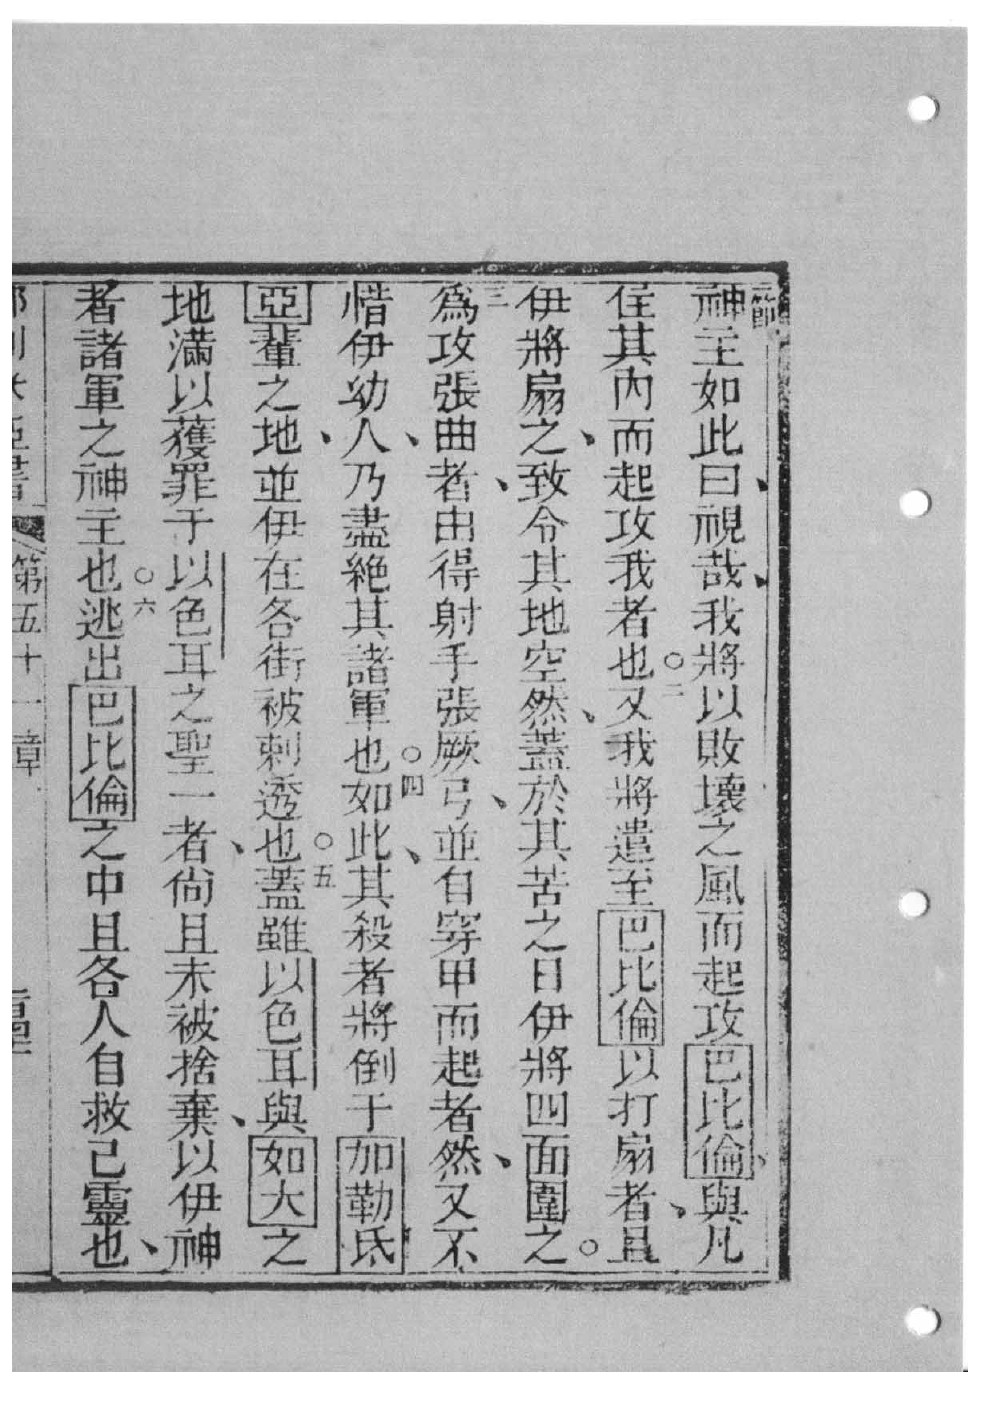 一節
神主如此曰、視哉、我將以敗壞之風而起攻巴比倫、與凡
住其內而起攻我者也○二又我將遣至巴比倫以打扇者、且
伊將扇之、致令其地空然、蓋於其苦之日伊將四面圍之○
三爲攻張曲者、由得射手張厥弓、並自穿甲而起者然、又不
惜伊幼人、乃盡絕其諸軍也○四如此、其殺者將倒于加勒氐
亞輩之地、並伊在各街被刺透也○五蓋雖以色耳與如大之
地滿以獲罪于以色耳之聖一者、尙且未被捨棄、以伊神
者諸軍之神主也○六逃出巴比倫之中且各人自救己靈也、
第五十一章